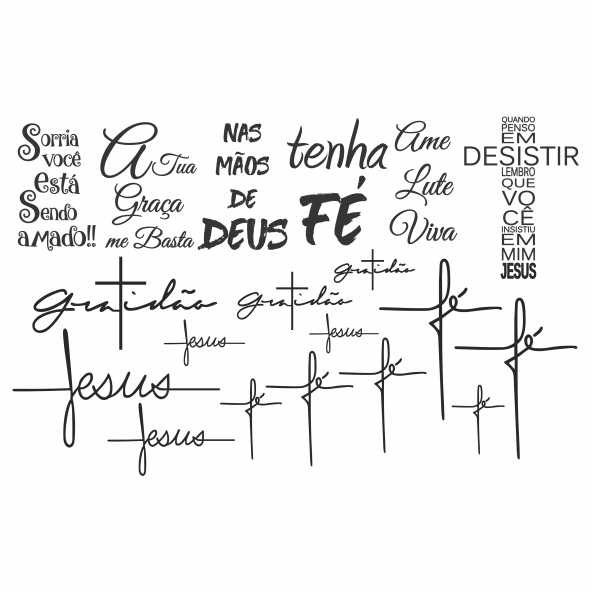 Sorria
você
está
Sendo
amado!!
A Tua
Graça
me Basta
NAS
MÃOS
DE
DEUS
tenha
FÉ
Ame
Lute
Viva
QUANDO
PENSO
EM
DESISTIR
LEMBRO
QUE
VO
CÊ
INSISTIU
EM
MIM
JESUS
gratidão
gratidão
gratidão
Jesus
Jesus
Jesus
Jesus
fé
fé
fé
fé
fé
fé